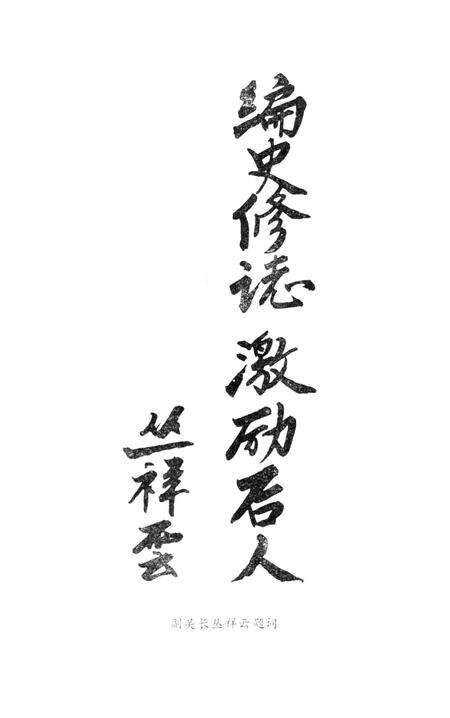 编史修誌 激励后人
丛祥雲
副关长丛祥云题词